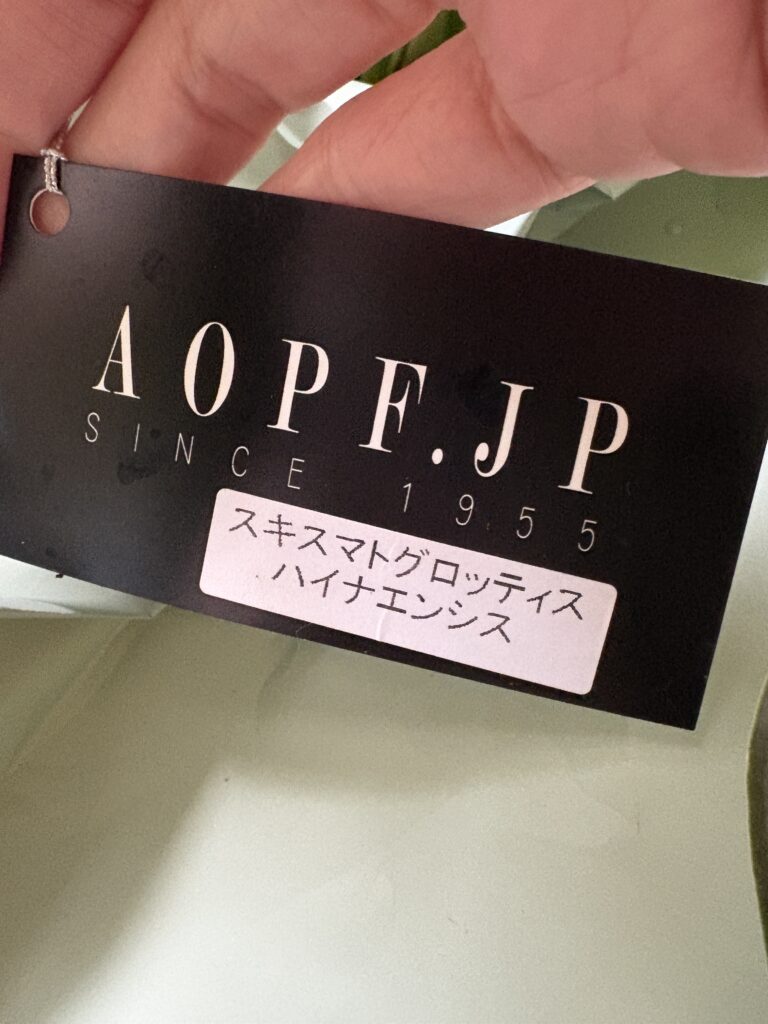 AOPF.JP
SINCE 1955
スキスマトグロッティス
ハイナエンシス